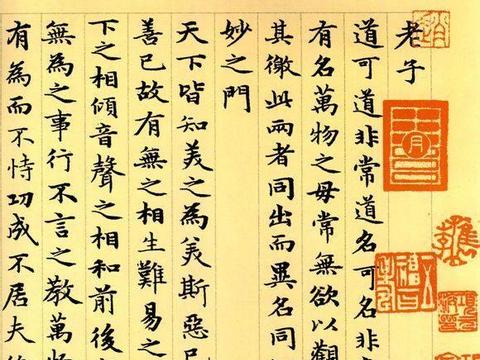 老子
道可道非常道名可名非
有名萬物之母常無欲以觀
其徼此兩者同出而異名同
妙之門
天下皆知美之為美斯惡已
善已故有無之相生難易之
下之相傾音聲之相和前後之
無為之事行不言之教萬物
有為而不恃功成不居夫